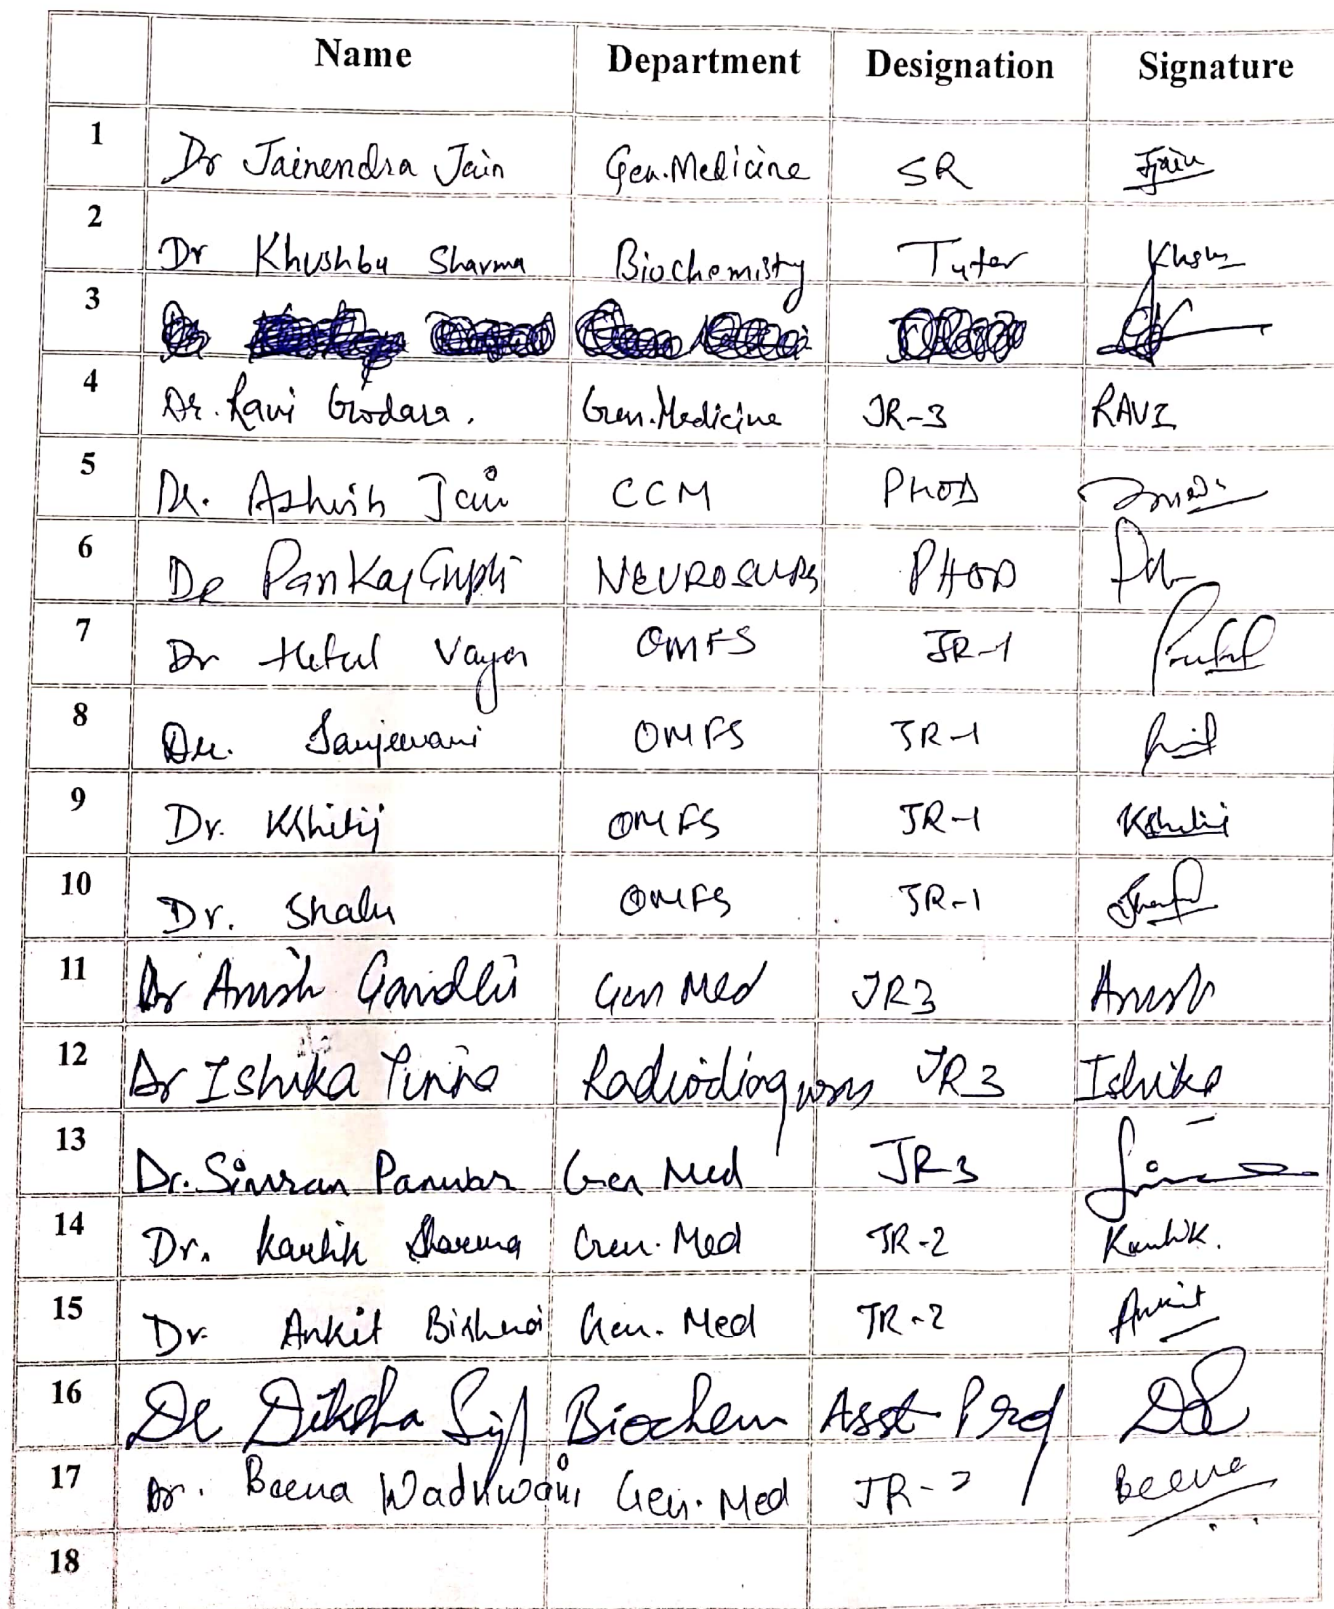 Name Department Designation Signature
1 Dr Jainendra Jain Gen.Medicine SR Jjain
2 Dr Khushbu Sharma Biochemisty Tutor
3
4 Dr. Ravi Godara. Gen.Medicine JR-3 RAVI
5 Dr. Ashish Jain CCM PHOD
6 Dr Pankaj Gupta NEUROSURG PHOD
7 Dr Hetul Vayer OMFS JR-1
8 Dr. Sanjeevani OMFS JR-1
9 Dr. Kshitij OMFS JR-1 Kshitij
10 Dr. Shalu OMFS JR-1
11 Dr Anush Gandhi Gen Med JR3 Anush
12 Dr Ishika Radiodiagnosis JR3 Ishika
13 Dr. Simran Panwar Gen Med JR3
14 Dr. Kartik Sharma Gen. Med JR-2 Kartik.
15 Dr. Ankit Bishnoi Gen. Med JR-2 Ankit
16 Dr Diksha Biochem Asst Prof
17 Dr. Beena Wadhwani Gen. Med JR-2 Beena
18